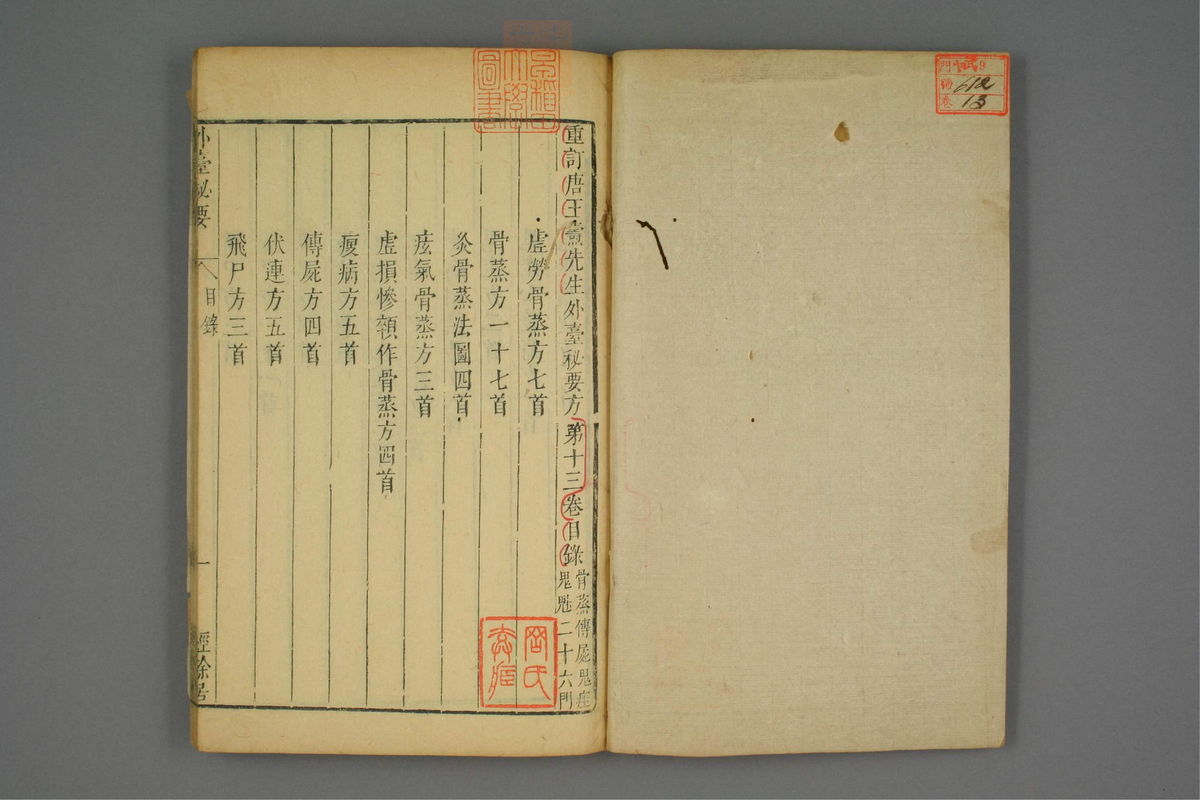 重訂唐王燾先生外臺秘要方第十三卷目錄
骨蒸傳屍鬼疰
鬼魅二十六門
虛勞骨蒸方七首
骨蒸方一十七首
灸骨蒸法圖四首
痃氣骨蒸方三首
虛損慘顇作骨蒸方四首
瘦病方五首
傳屍方四首
伏連方五首
飛尸方三首
外臺秘要
目錄
一
經餘居
早稻田
大學
圖書
門
號 612
卷 13